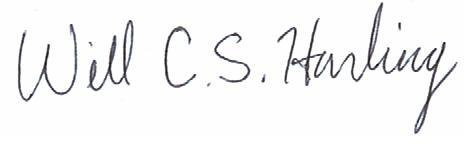 Will C.S. Harling